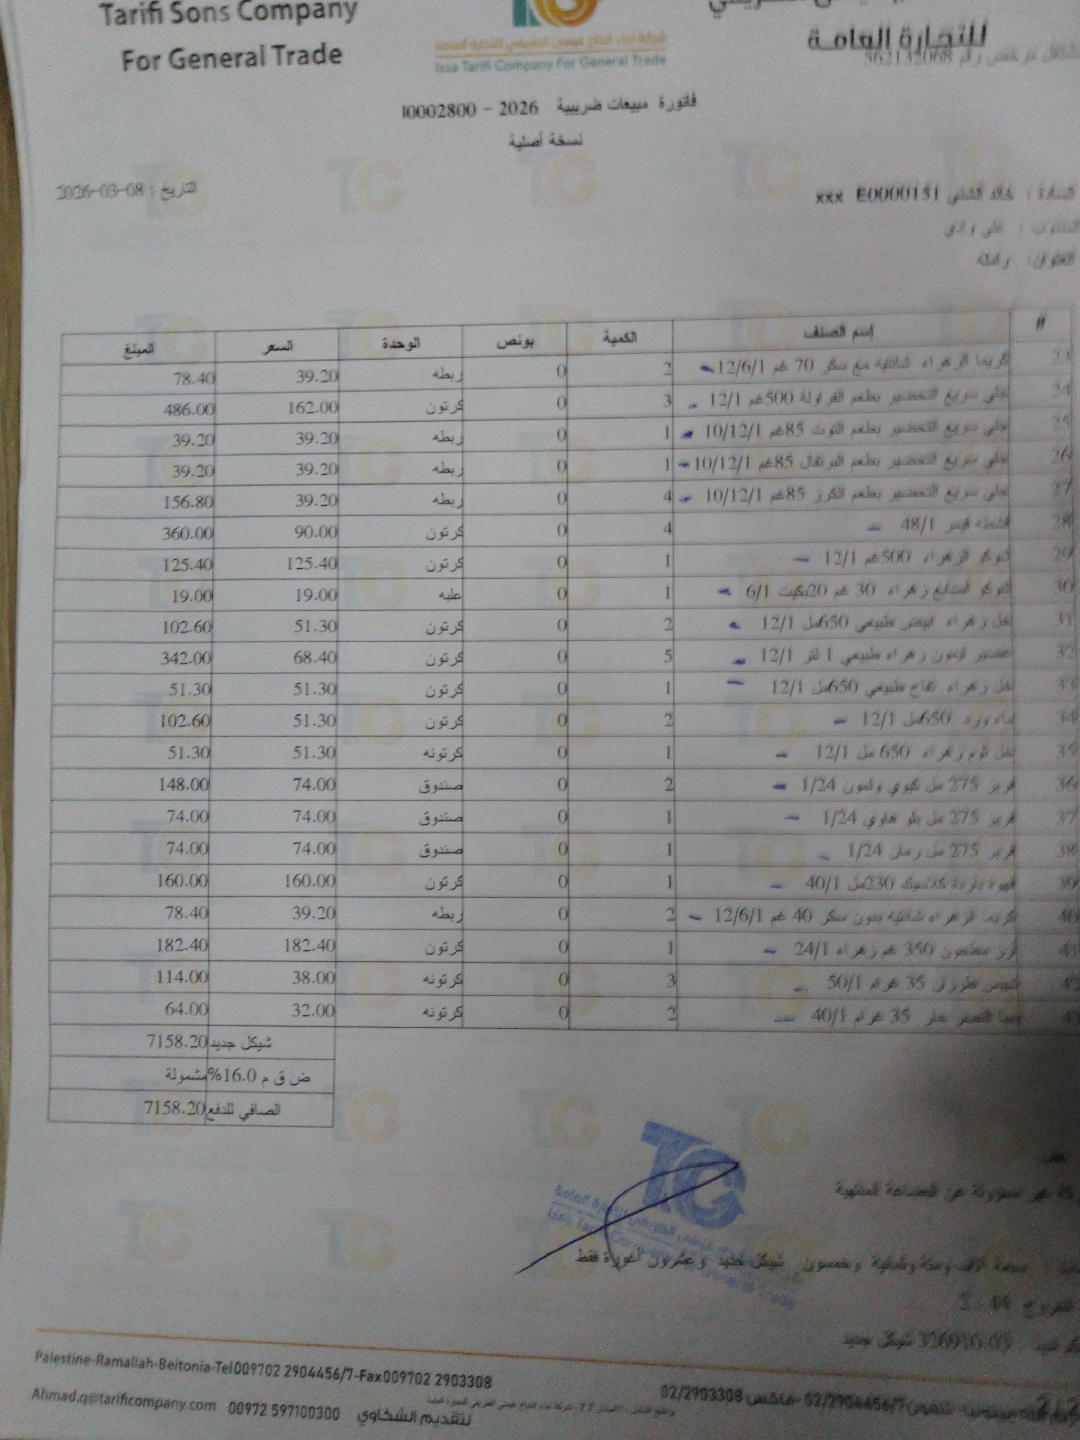 Tarifi Sons Company
For General Trade
للتجارة العامة
شركة ابناء الحاج عيسى الطريفي للتجارة العامة
Issa Tarifi Company For General Trade
562132068
فاتورة مبيعات ضريبية 2026 - I0002800
نسخة أصلية
التاريخ : 2026-03-08
السادة : خالد xxx E0000151
المندوب : علي وادي
العنوان:
# إسم الصنف الكمية بونص الوحدة السعر المبلغ
23 كريما الزهراء شانتيه مع سكر 70 غم 12/6/1 2 0 ربطه 39.20 78.40
24 جلي سريع التحضير بطعم الفراولة 500غم 12/1 3 0 كرتون 162.00 486.00
25 جلي سريع التحضير بطعم التوت 85غم 10/12/1 1 0 ربطه 39.20 39.20
26 جلي سريع التحضير بطعم البرتقال 85غم 10/12/1 1 0 ربطه 39.20 39.20
27 جلي سريع التحضير بطعم الكرز 85غم 10/12/1 4 0 ربطه 39.20 156.80
28 قشطه قيمر 48/1 4 0 كرتون 90.00 360.00
29 الزهراء 500غم 12/1 1 0 كرتون 125.40 125.40
30 زهراء 30 غم 20 6/1 1 0 علبه 19.00 19.00
31 خل زهراء ابيض طبيعي 650مل 12/1 2 0 كرتون 51.30 102.60
32 عصير ليمون زهراء طبيعي 1 لتر 12/1 5 0 كرتون 68.40 342.00
33 خل زهراء تفاح طبيعي 650مل 12/1 1 0 كرتون 51.30 51.30
34 ماء ورد 650مل 12/1 2 0 كرتون 51.30 102.60
35 خل ثوم زهراء 650 مل 12/1 1 0 كرتونه 51.30 51.30
36 فريز 275 مل كيوي وليمون 1/24 2 0 صندوق 74.00 148.00
37 فريز 275 مل بلو هاواي 1/24 1 0 صندوق 74.00 74.00
38 فريز 275 مل رمان 1/24 1 0 صندوق 74.00 74.00
39 قهوة باردة كلاسيك 230مل 40/1 1 0 كرتون 160.00 160.00
40 كريما الزهراء شانتيه بدون سكر 40 غم 12/6/1 2 0 ربطه 39.20 78.40
41 ارز مطحون 350 غم زهراء 24/1 1 0 كرتون 182.40 182.40
42 35 غرام 50/1 3 0 كرتونه 38.00 114.00
43 35 غرام 40/1 2 0 كرتونه 32.00 64.00
شيكل جديد 7158.20
ض ق م 16.0% مشمولة
الصافي للدفع 7158.20
غير مسؤولة عن البضاعة المنتهية
سبعة آلاف ومئة وثمانية وخمسون شيكل جديد وعشرون أغورة فقط
شيكل جديد
Palestine-Ramallah-Beitonia-Tel009702 2904456/7-Fax009702 2903308
02/2904456/7 -فاكس 02/2903308
Ahmad.q@tarificompany.com 00972 597100300 لتقديم الشكاوي
2/2